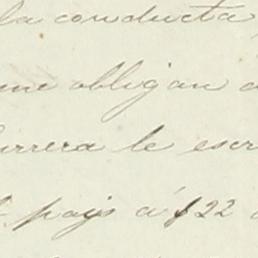 la conducta
me obligan a
urrera le escr
pais á $22